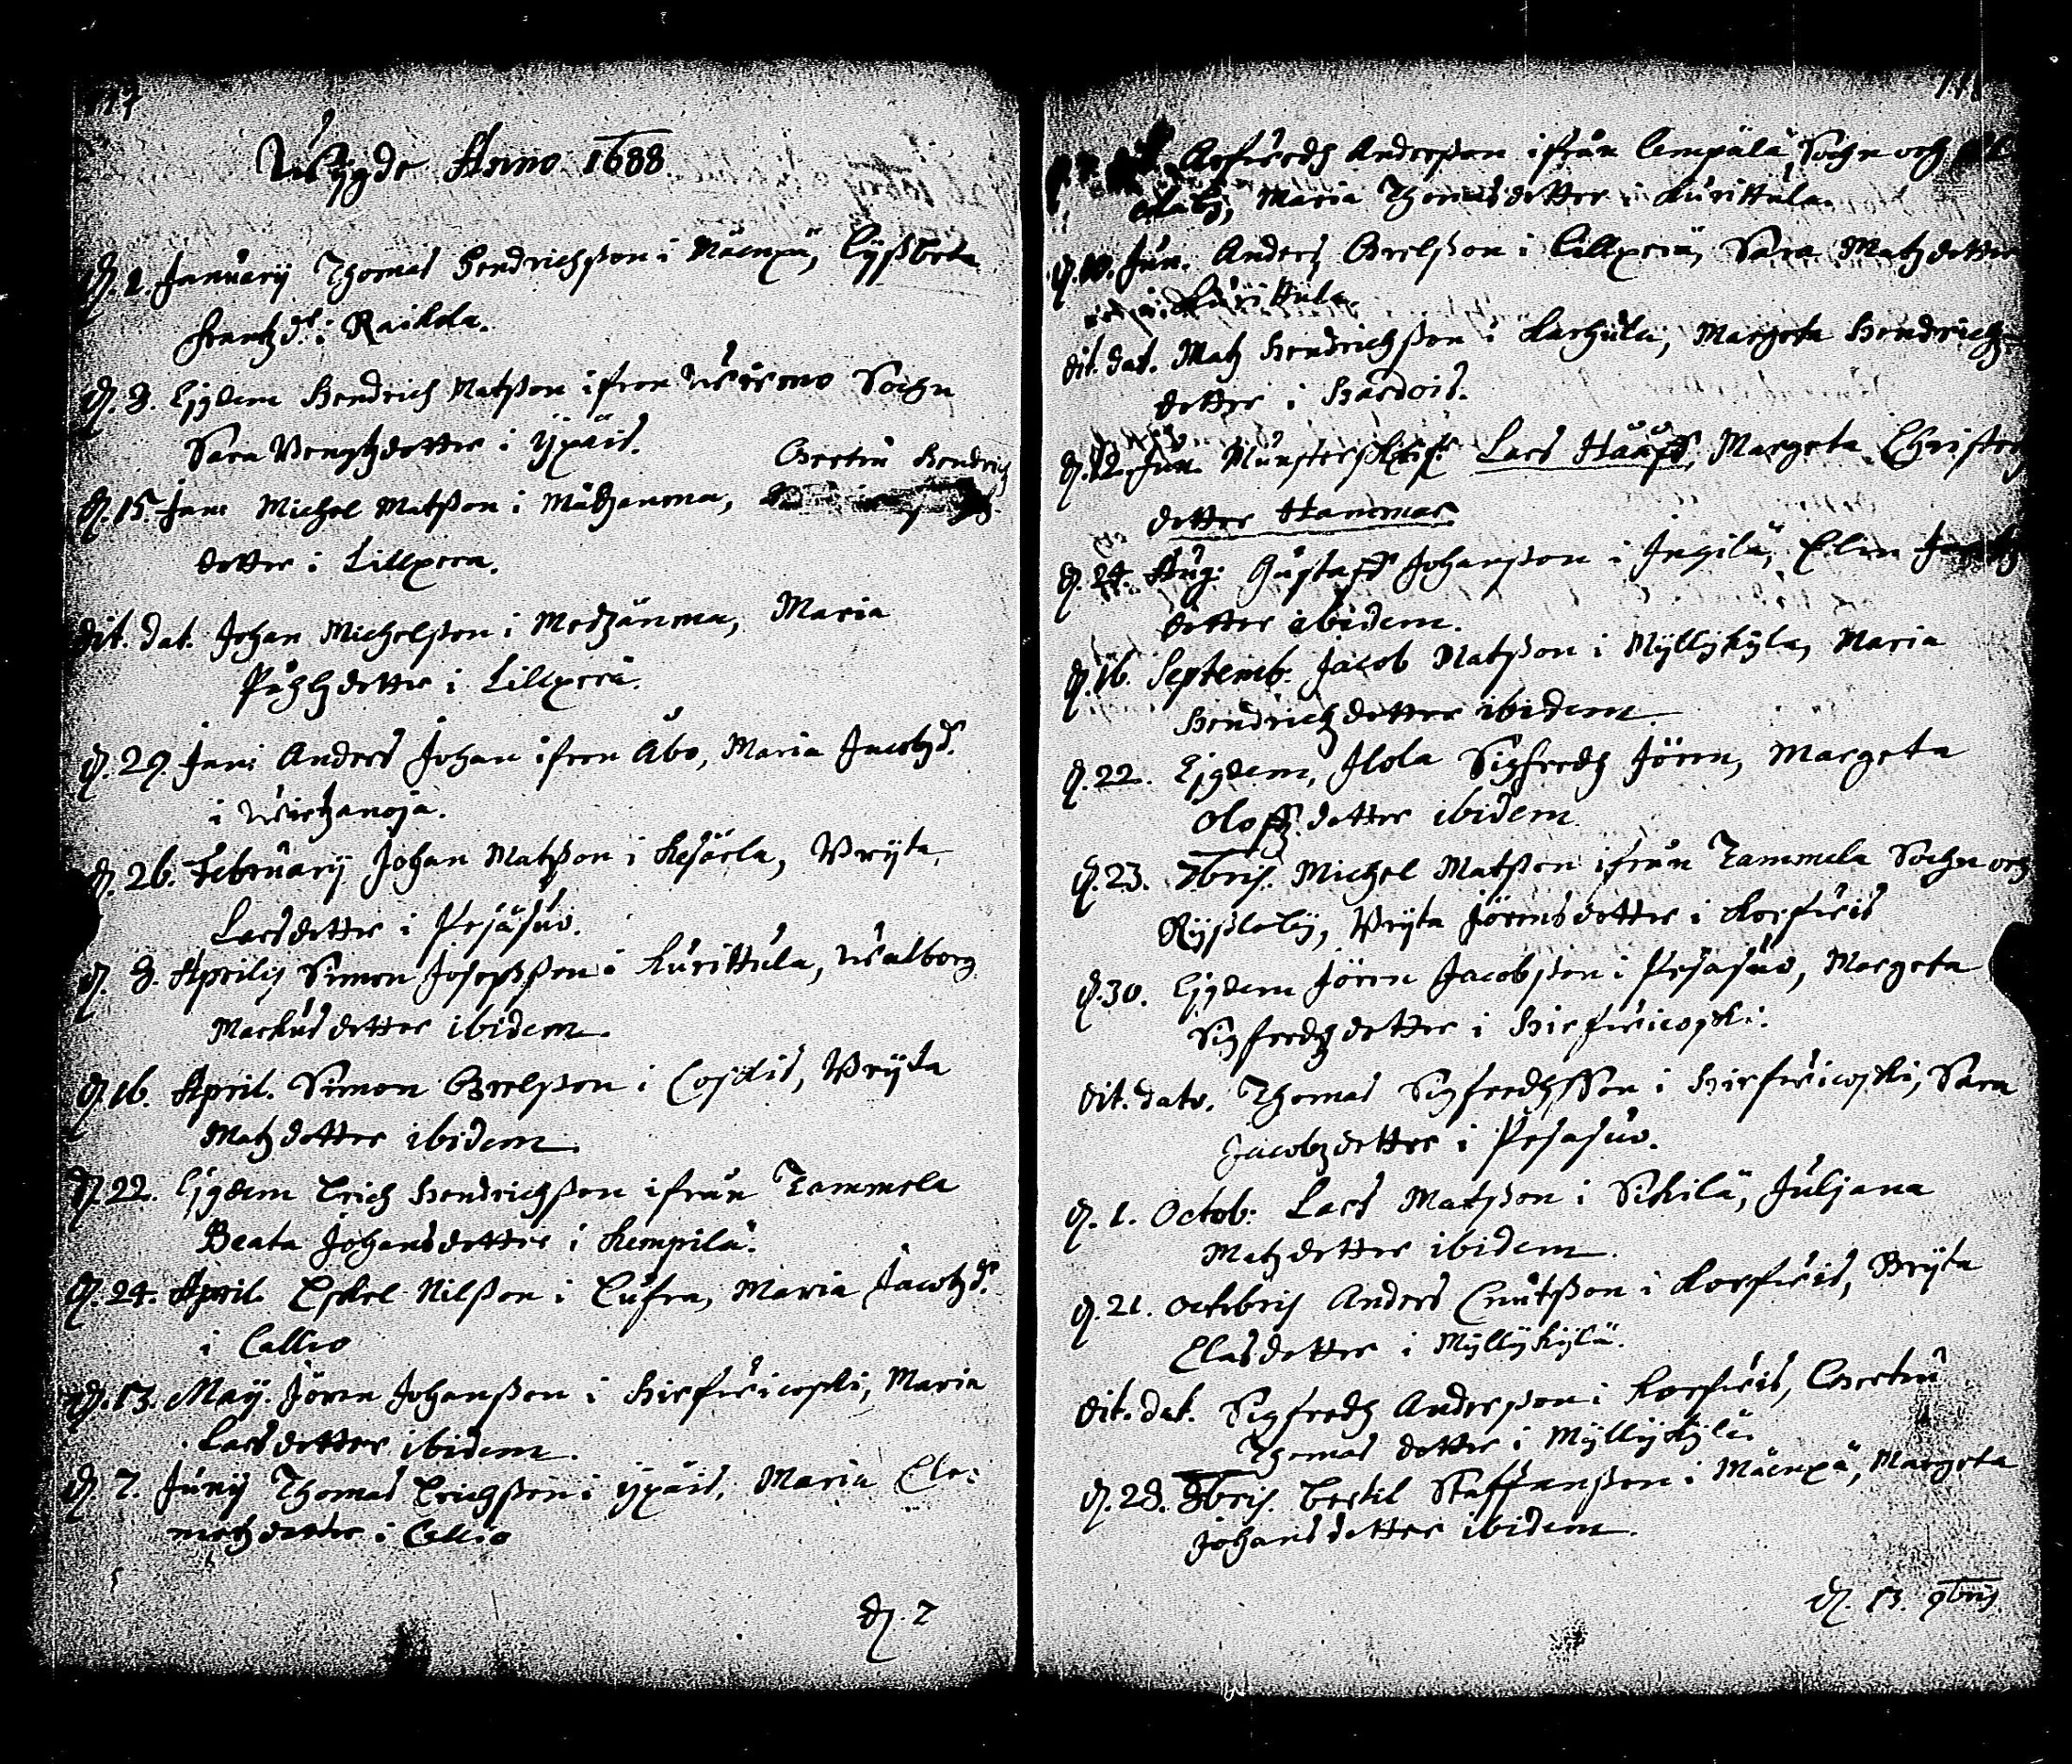 117
Wÿgde Anno 1688.
d. 1. Januarij Thomas Hendrichsson i Mäenpä, Lyssbeta
Frantzd.r i Raikola.
d. 8. Ejgdem Hendrich Matsson ifrån Wirmo Sochn
Sara Bengtzdotter i Ypäis.
Giertru Hendrich
d. 15. Jan: Michel Matsson i Mätzänma,
dotter i Lillperä.
dit. dat. Johan Michelsson i Metzänma, Maria
Påhlsdotter i Lillperä.
d. 29. Jan: Anders Johan ifrån Åbo, Maria Jacobzd.r
i Wirtzanoja.
d. 26. Februarij Johan Matsson i Kesärla, Bryta
Larsdotter i Pesäsuo.
d. 8. Aprilis Simon Josepsson i Kurittula, Walborg
Markusdotter ibidem.
d. 16. April. Simon Grelsson i Cojdis, Bryta
Matzdotter ibidem.
d. 22. Ejgdem Erich Hendrichsson ifrån Tammela
Beata Johansdotter i Kempilä.
d. 24. April. Eskel Nilsson i Cufra, Maria Jacobzd.r
i Callio
d. 13. Maij. Jören Johansson i Hirfwicoski, Maria
Larsdotter ibidem.
d. 7. Junij Thomas Erichsson i Ypäis, Maria Cle:
metzdotter i Callio
d. 7
118
Arfwedh Andersson ifrån Cempälä Sochn och
Maria Thomasdotter i Kurittula.
d. 10. Jun. Anders Grelsson i Lillperä, Sara Matzdotter
i Kurittula.
dit. dat. Matz Hendrichsson i Karhula, Margeta Hendrichz
dotter i Hardois.
d. 12. Jun. Munsterskrif: Lars Haaps, Margeta Christers
dotter Hammar
d. 24. Aug: Gustaff Johansson i Jngilä, Elin
dotter ibidem.
d. 16. Septemb. Jacob Matsson i Myllykyla, Maria
Hendrichzdotter ibidem.
d. 22. Ejgdem, Jlola Sigfredz Jören, Margeta
Oloffzdotter ibidem.
d. 23. 7bris. Michel Matsson ifrån Tammela Sochn och
Ryssleby, Bryta Jörensdotter i Korfwis
d. 30. Ejgdem Jören Jacobsson i Pesäsuo, Margeta
Sigfredzdotter i Hirfwicoski.
dit. dato. Thomas Sigfredhsson i Hirfwicoski, Sara
Jacobzdotter i Pesäsuo.
d. 1. Octob. Lars Matsson i Sikilä, Juljana
Matzdotter ibidem.
d. 21. Octobris Anders Cnutsson i Korfwis, Bryta
Clasdotter i Myllykylä.
dit. dat. Sigfredh Andersson i Korfwis, Giertru
Thomas dotter i Myllykylä.
d. 28. 8bris. Bertil Staffansson i Mäenpä, Margeta
Johansdotter ibidem.
d. 13. 9bris